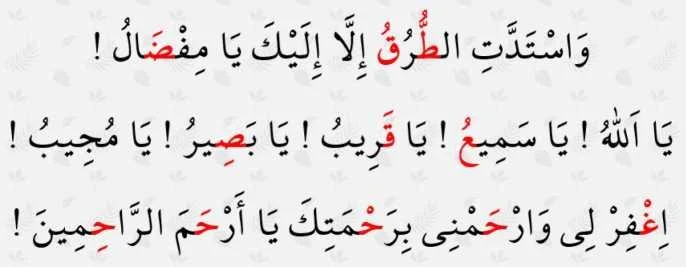 وَاسْتَدَّتِ الطُّرُقُ إِلَّا إِلَيْكَ يَا مِفْضَالُ !
يَا اَللهُ ! يَا سَمِيعُ ! يَا قَرِيبُ ! يَا بَصِيرُ ! يَا مُجِيبُ !
اِغْفِرْ لِى وَارْحَمْنِى بِرَحْمَتِكَ يَا أَرْحَمَ الرَّاحِمِينَ !